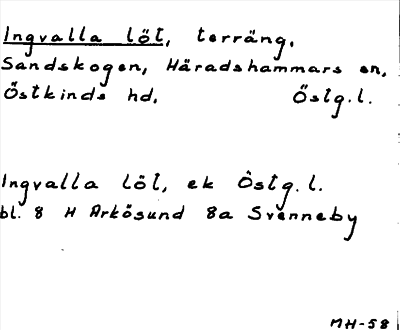 Ingvalla löt, terräng.
Sandskogen, Häradshammars sn,
Östkinds hd. Östg.l.
Ingvalla löt, ek Östg.l.
bl. 8 H Arkösund 8a Svenneby
MH-58